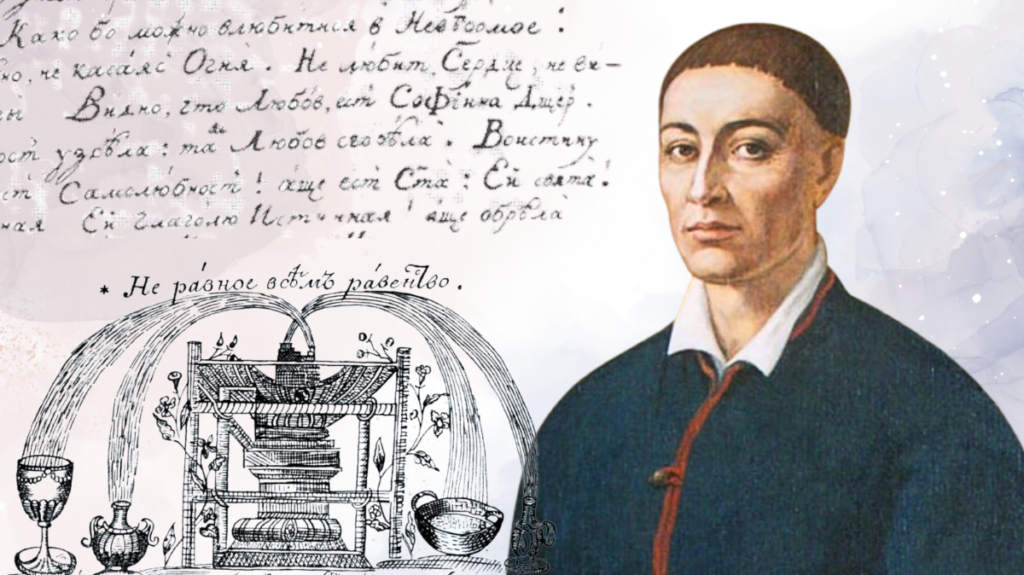 Како бо можно влюбитися в Невѣдомое?
но, не касаяс Огня. Не любит Сердце, не ви-
Видно, что Любов, ест Софіина Дщер.
узрѣла: та́м Любов сгорѣла. Воистину
Самолю́бност! а́ще ест Ста: Ей свята!
ная Ей глаголю Истинная! а́ще обрѣла
* Не ра́вное всѣ́мъ ра́венство.